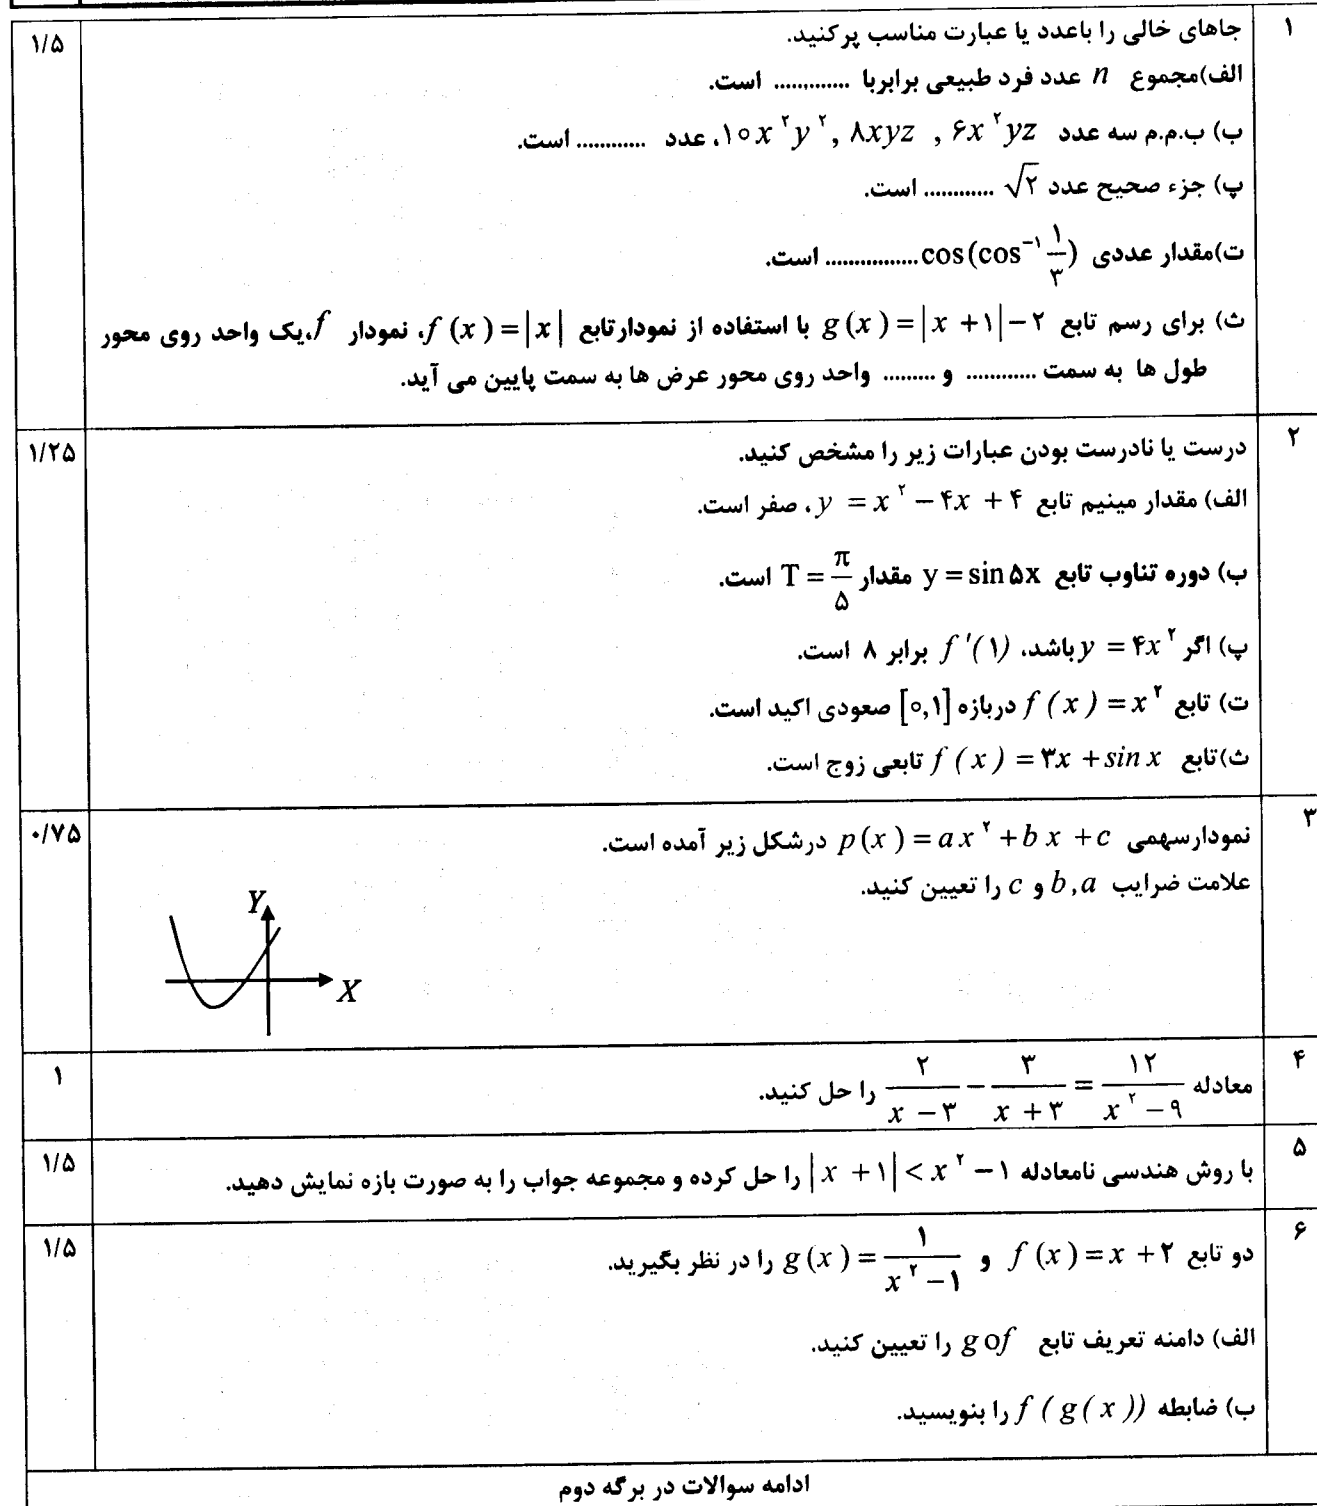 ۱ جاهای خالی را باعدد یا عبارت مناسب پرکنید. ۱/۵
الف)مجموع n عدد فرد طبیعی برابربا ............. است.
ب) ب.م.م سه عدد ۶x²yz , ۸xyz , ۱۰x²y²، عدد ............ است.
پ) جزء صحیح عدد √۲ ............ است.
ت)مقدار عددی cos(cos⁻¹ ۱/۳) ................ است.
ث) برای رسم تابع g(x)=|x+۱|−۲ با استفاده از نمودارتابع f(x)=|x|، نمودار f،یک واحد روی محور
طول ها به سمت ............ و ......... واحد روی محور عرض ها به سمت پایین می آید.
۲ درست یا نادرست بودن عبارات زیر را مشخص کنید. ۱/۲۵
الف) مقدار مینیم تابع y = x² − ۴x + ۴ ، صفر است.
ب) دوره تناوب تابع y = sin ۵x مقدار T = π/۵ است.
پ) اگر y = ۴x² باشد، f′(۱) برابر ۸ است.
ت) تابع f(x) = x² دربازه [۰,۱] صعودی اکید است.
ث)تابع f(x) = ۳x + sin x تابعی زوج است.
۳ نمودارسهمی p(x) = ax² + bx + c درشکل زیر آمده است. ۰/۷۵
علامت ضرایب b,a و c را تعیین کنید.
Y
X
۴ معادله ۲/(x−۳) − ۳/(x+۳) = ۱۲/(x²−۹) را حل کنید. ۱
۵ با روش هندسی نامعادله |x+۱| < x² − ۱ را حل کرده و مجموعه جواب را به صورت بازه نمایش دهید. ۱/۵
۶ دو تابع f(x) = x + ۲ و g(x) = ۱/(x²−۱) را در نظر بگیرید. ۱/۵
الف) دامنه تعریف تابع gof را تعیین کنید.
ب) ضابطه f(g(x)) را بنویسید.
ادامه سوالات در برگه دوم